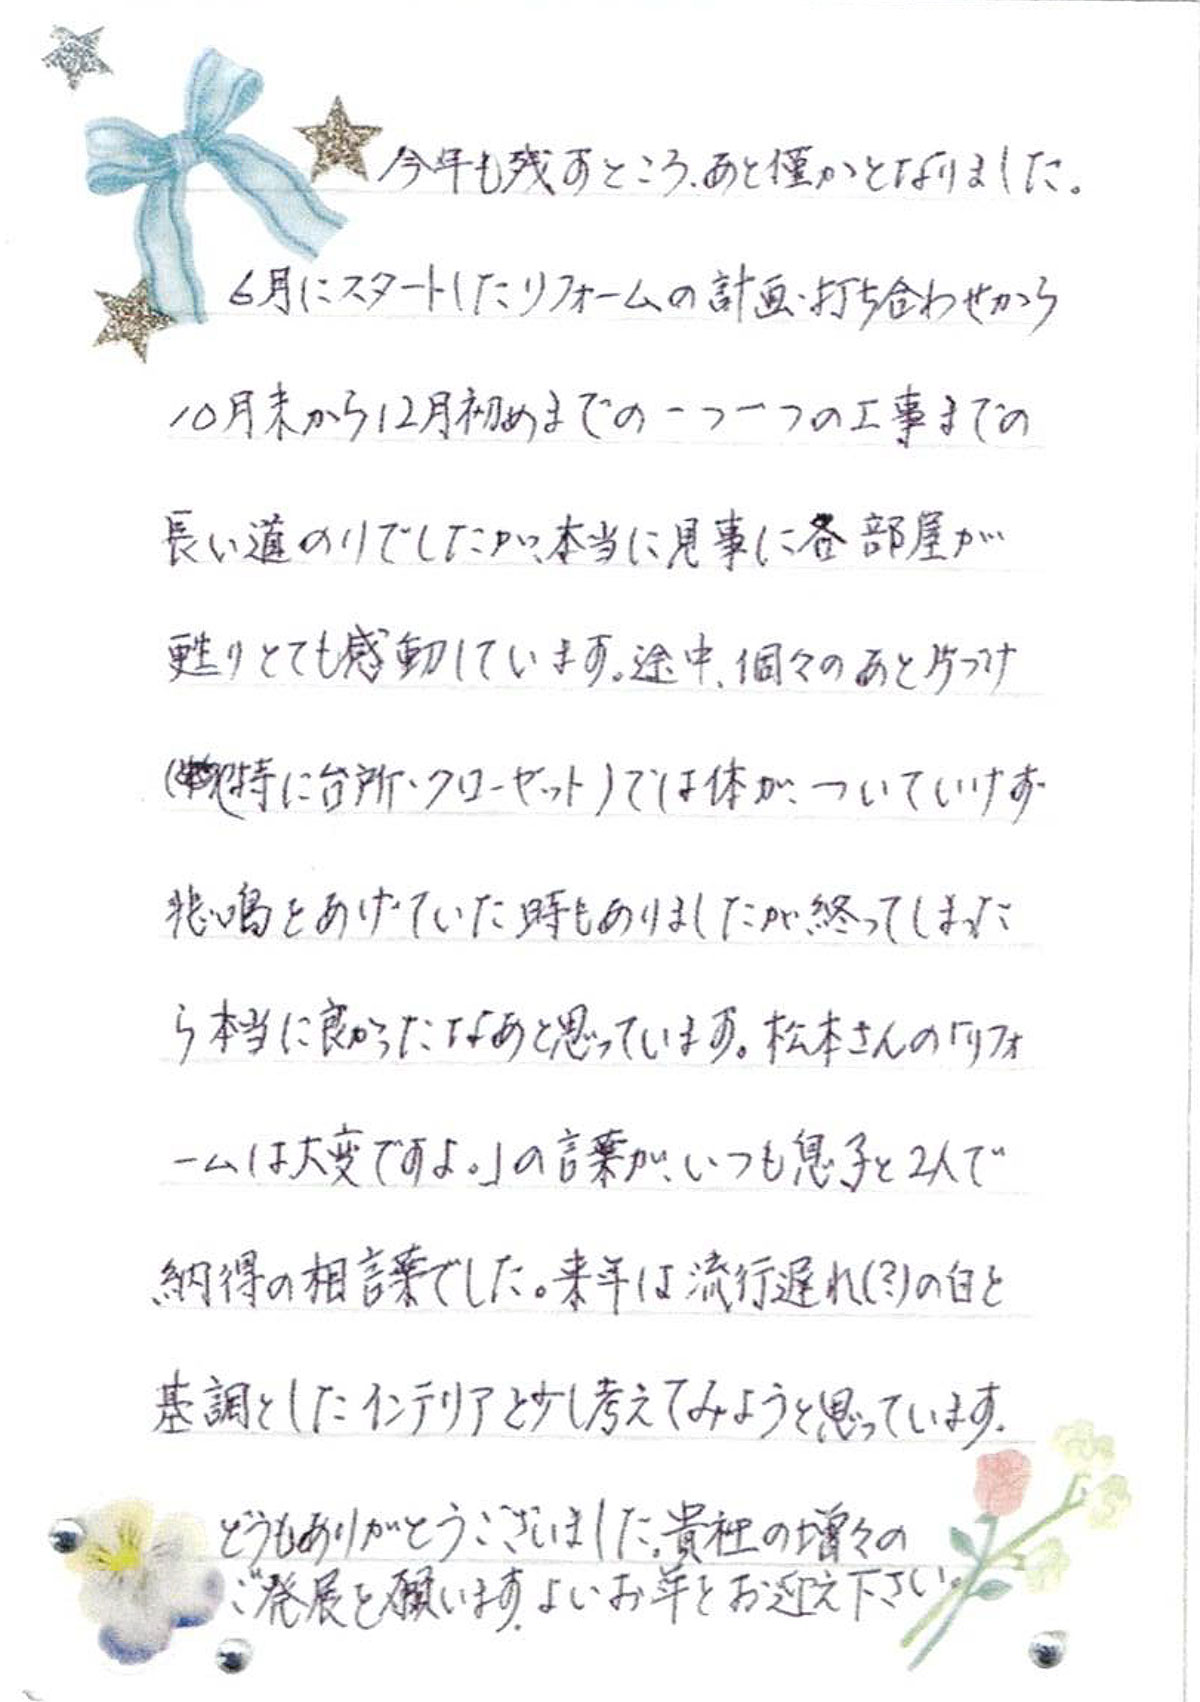 今年も残すところ、あと僅かとなりました。
6月にスタートしたリフォームの計画・打ち合わせから
10月末から12月初めまでの一つ一つの工事までの
長い道のりでしたが、本当に見事に各部屋が
甦りとても感動しています。途中、個々のあと片づけ
(特に台所・クローゼット)では体が、ついていけず
悲鳴をあげていた時もありましたが、終ってしまった
ら本当に良かったなあと思っています。松本さんの「リフォ
ームは大変ですよ。」の言葉が、いつも息子と2人で
納得の相言葉でした。来年は流行遅れ(?)の白を
基調としたインテリアを少し考えてみようと思っています。
どうもありがとうございました。貴社の増々の
ご発展を願います。よいお年をお迎え下さい。